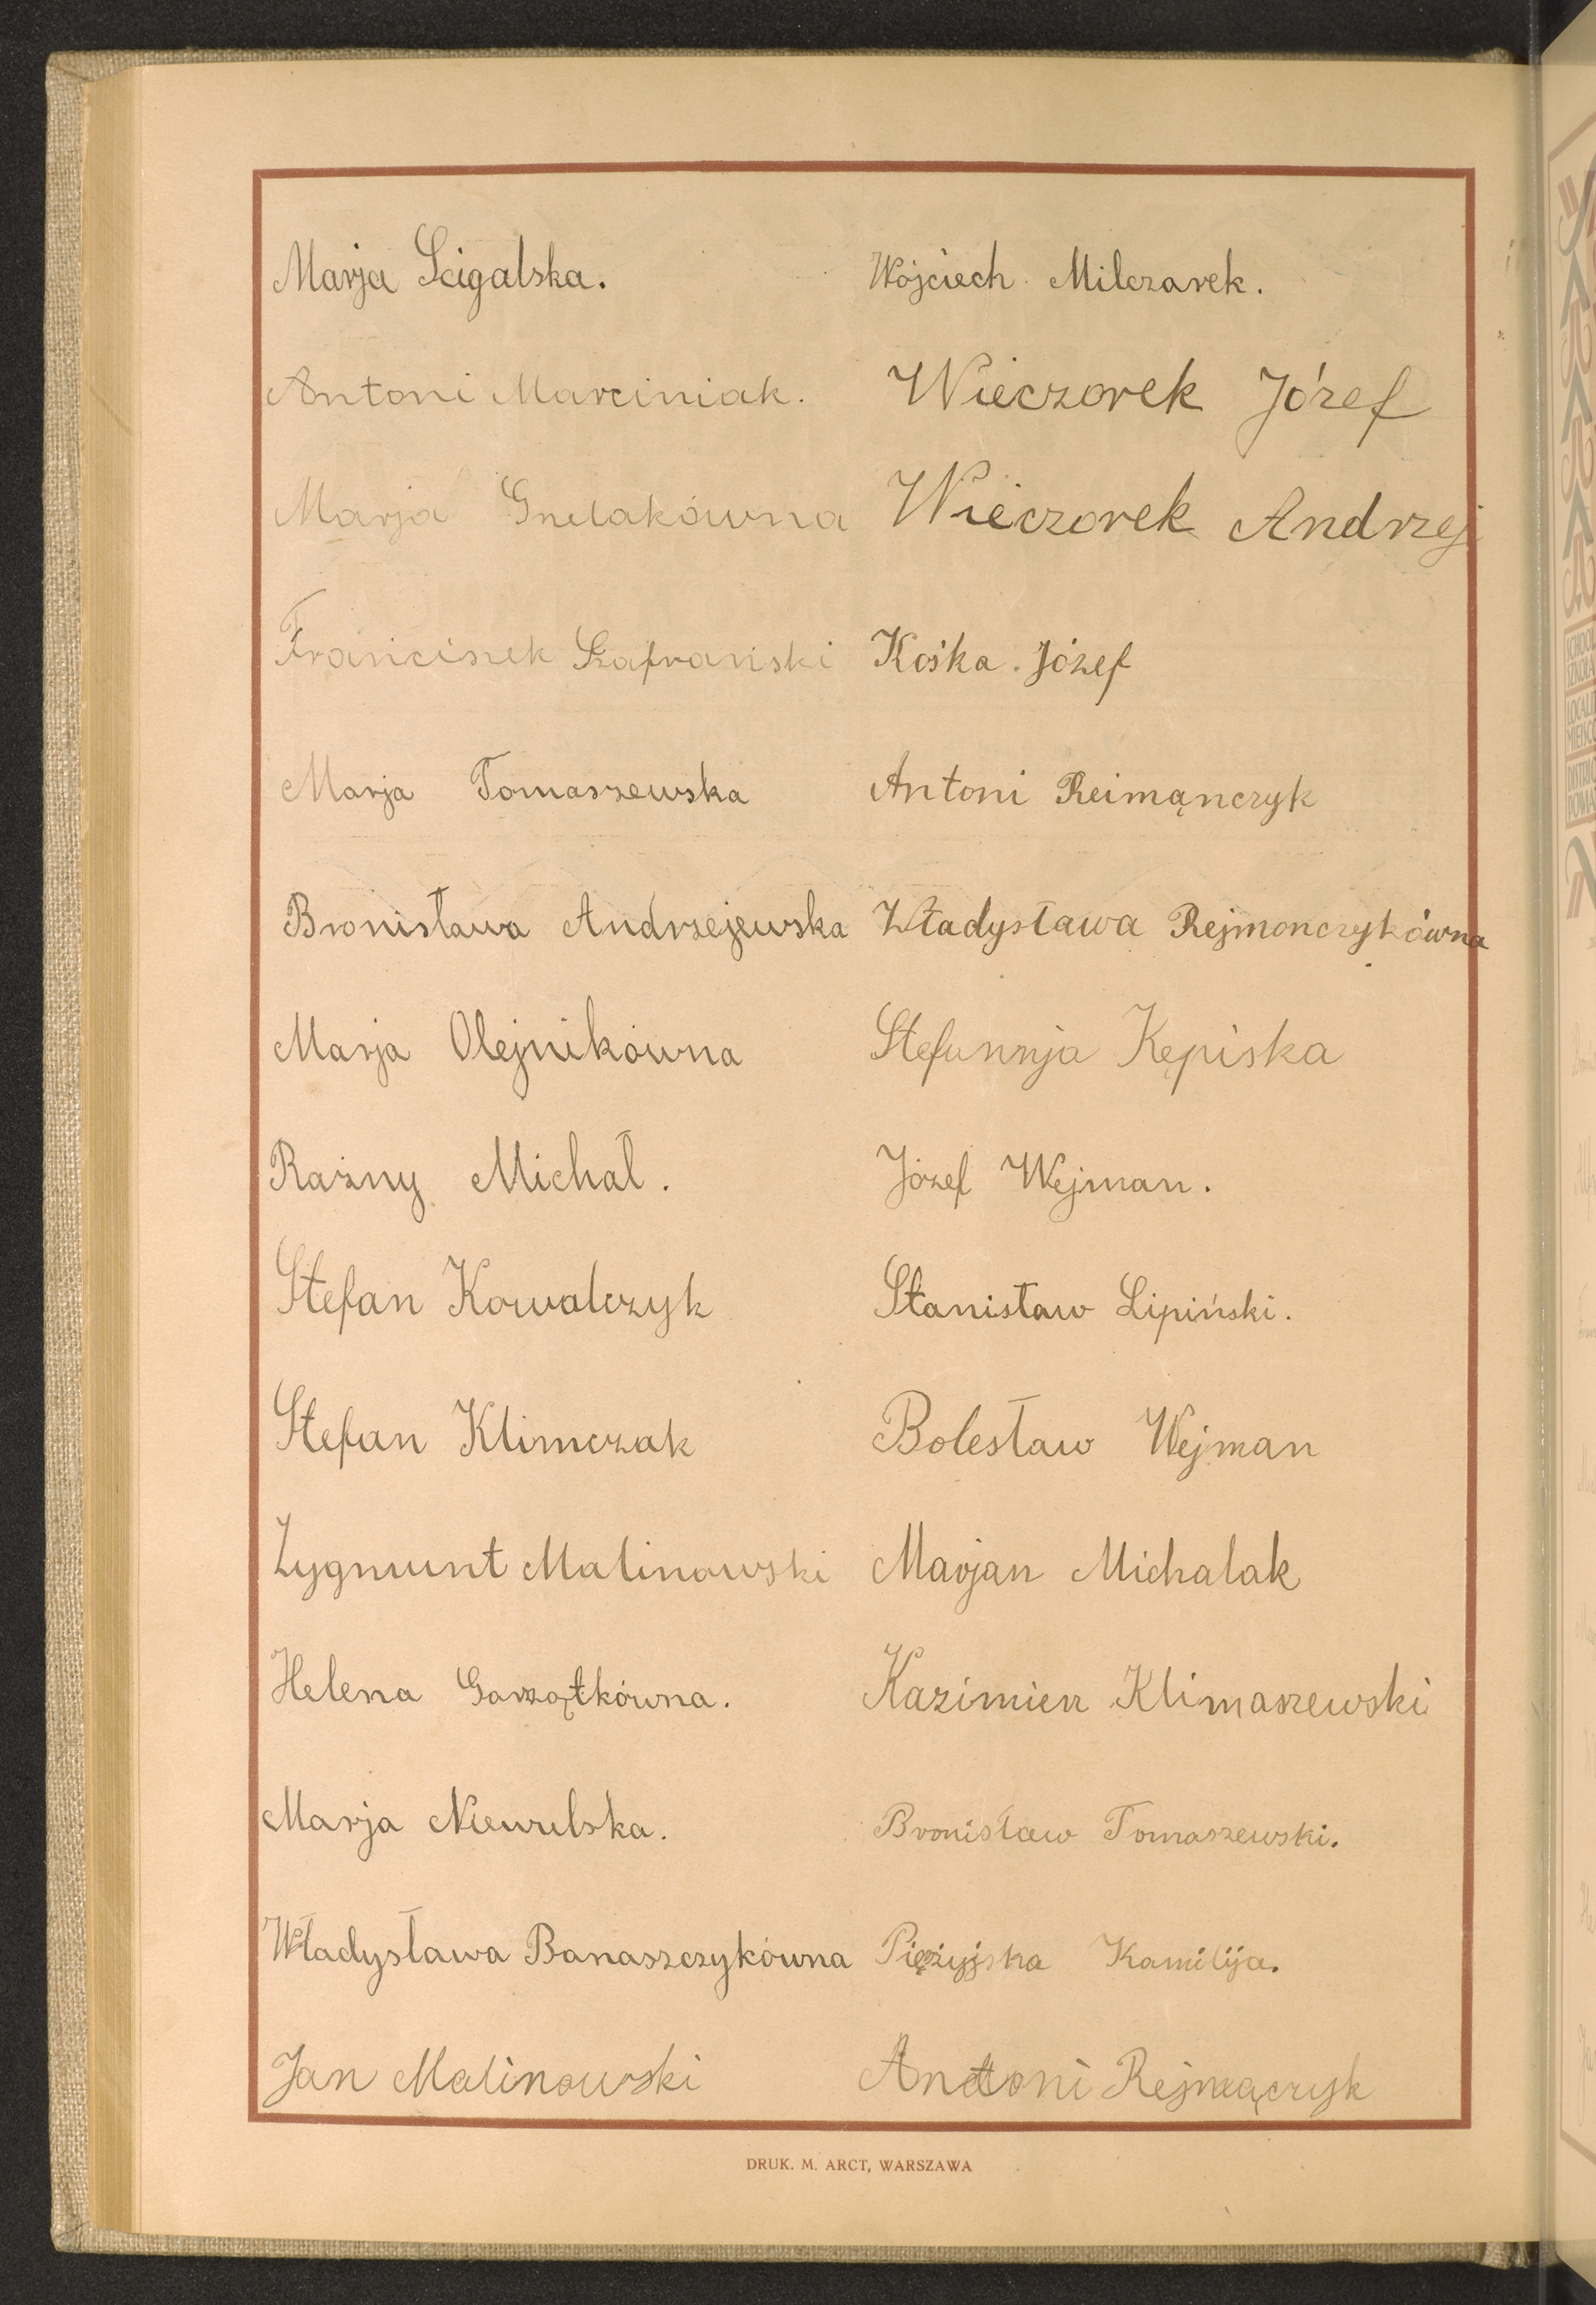 Marja Scigalska.
Antoni Marciniak.
Marja Gnelakówna
Francisek Szafrański
Marja Tomaszewska
Bronisława Andrzejewska
Marja Olejnikówna
Raźny Michał.
Stefan Kowalczyk
Stefan Klimczak
Zygmunt Malinowski
Helena Garzątkówna.
Marja Niewulska.
Władysława Banaszczykówna
Jan Malinowski
Wojciech Milczarek.
Wieczorek Józef
Wieczorek Andrzej
Kośka Józef
Antoni Reimąnczyk
Władysława Rejmonczykówna
Stefannja Kępiska
Józef Wejman.
Stanisław Lipiński.
Bolesław Wejman
Marjan Michalak
Kazimierz Klimaszewski
Bronisław Tomaszewski.
Kamilija.
Antoni Rejmączyk
DRUK. M. ARCT, WARSZAWA